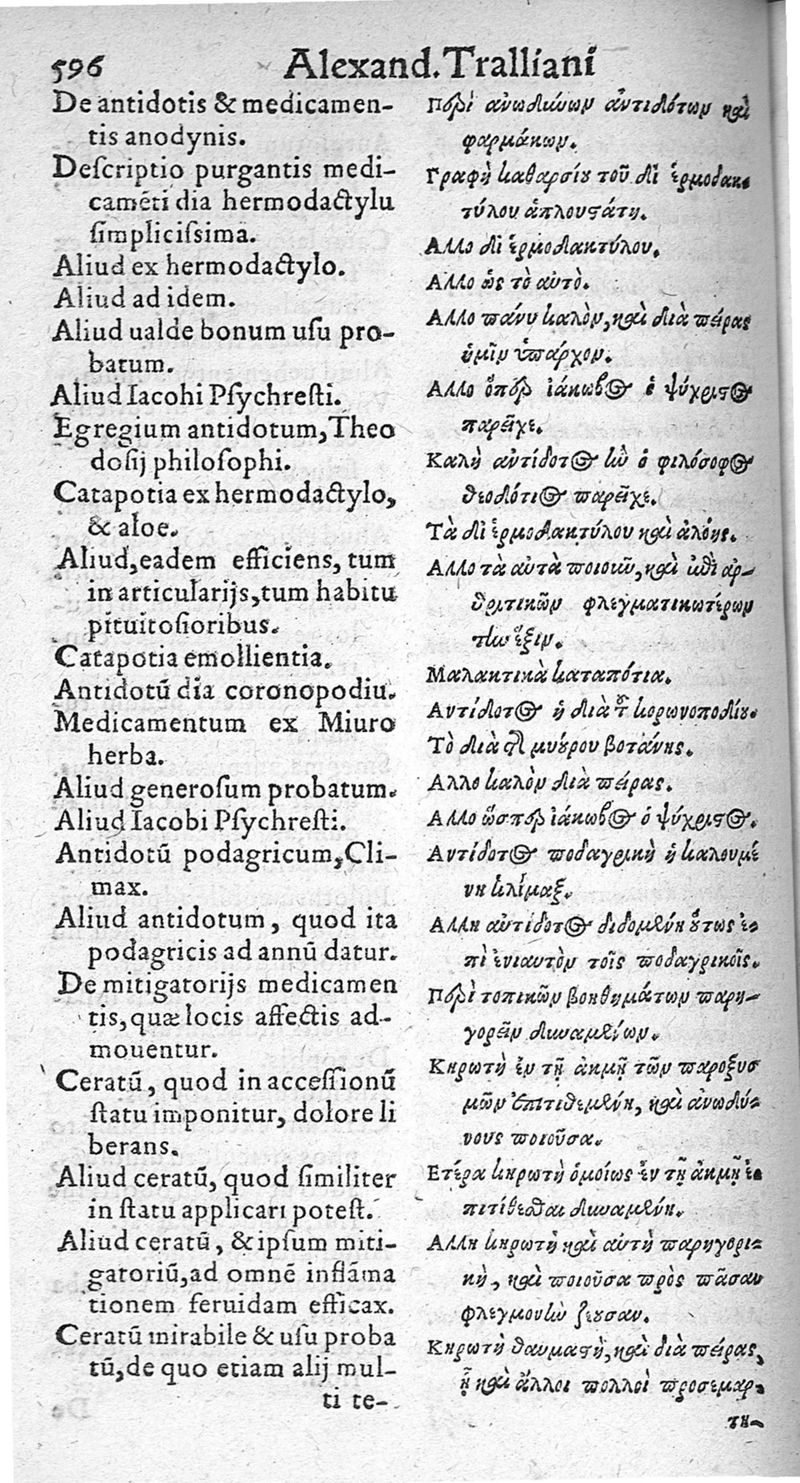 596
Alexand. Tralliani
De antidotis & medicamen-
tis anodynis.
Descriptio purgantis medi-
camēti dia hermodactylu
simplicissima.
Aliud ex hermodactylo.
Aliud ad idem.
Aliud ualde bonum usu pro-
batum.
Aliud Iacohi Psychresti.
Egregium antidotum, Theo
dosij philosophi.
Catapotia ex hermodactylo,
& aloe.
Aliud, eadem efficiens, tum
in articularijs, tum habitu
pituitosioribus.
Catapotia emollientia.
Antidotū dia coronopodiu.
Medicamentum ex Miuro
herba.
Aliud generosum probatum.
Aliud Iacobi Psychresti.
Antidotū podagricum, Cli-
max.
Aliud antidotum, quod ita
podagricis ad annū datur.
De mitigatorijs medicamen
tis, quæ locis affectis ad-
mouentur.
Ceratū, quod in accessionū
statu imponitur, dolore li
berans.
Aliud ceratū, quod similiter
in statu applicari potest.
Aliud ceratū, & ipsum miti-
gatoriū, ad omnē inflāma
tionem feruidam efficax.
Ceratū mirabile & usu proba
tū, de quo etiam alij mul-
ti te-
Περὶ ἀνωδύνων ἀντιδότων καὶ
φαρμάκων.
Γραφὴ καθαρσίου τοῦ δι᾽ ἑρμοδακ-
τύλου ἁπλουστάτη.
Αλλο δι᾽ ἑρμοδακτύλου.
Αλλο ὡς τὸ αὐτό.
Αλλο πάνυ καλὸν, καὶ διὰ πείρας
ὑμῖν ὑπάρχον.
Αλλο ὅπερ ἰάκωβος ὁ ψύχριστος
παρεῖχε.
Καλὴ ἀντίδοτος ἣν ὁ φιλόσοφος
θεολότιος παρεῖχε.
Τὰ δι᾽ ἑρμοδακτύλου καὶ ἀλόης.
Αλλο τὰ αὐτὰ ποιοῦν, καὶ ἐπὶ ἀρ-
θριτικῶν φλεγματικωτέρων
τὴν ἕξιν.
Μαλακτικὰ καταπότια.
Αντίδοτος ἡ διὰ τοῦ κορωνοποδίου.
Τὸ διὰ τῆς μυούρου βοτάνης.
Αλλο καλὸν διὰ πείρας.
Αλλο ὥσπερ ἰάκωβος ὁ ψύχριστος.
Αντίδοτος ποδαγρικὴ ἡ καλουμέ
νη κλίμαξ.
Αλλη ἀντίδοτος διδομένη οὕτως ἐ-
πὶ ἐνιαυτὸν τοῖς ποδαγρικοῖς.
Περὶ τοπικῶν βοηθημάτων παρη-
γορεῖν δυναμένων.
Κηρωτὴ ἐν τῇ ἀκμῇ τῶν παροξυσ
μῶν ἐπιτιθεμένη, καὶ ἀνωδύ-
νους ποιοῦσα.
Ετέρα κηρωτὴ ὁμοίως ἐν τῇ ἀκμῇ ἐ-
πιτίθεσθαι δυναμένη.
Αλλη κηρωτὴ καὶ αὐτὴ παρηγορι-
κὴ, καὶ ποιοῦσα πρὸς πᾶσαν
φλεγμονὴν ζέουσαν.
Κηρωτὴ θαυμαστὴ, καὶ διὰ πείρας,
ᾗ καὶ ἄλλοι πολλοὶ προσεμαρ-
τυ-